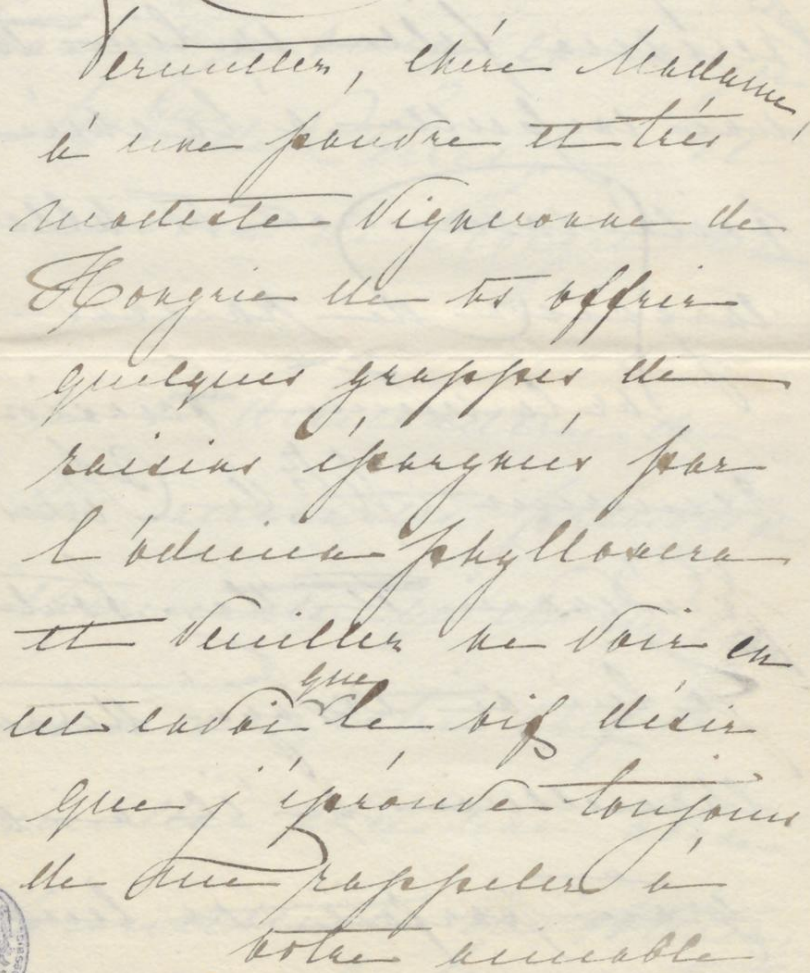 Permettez, chère Madame,
à une pauvre et très
modeste Vigneronne de
Hongrie de vs offrir
quelques grappes de
raisins épargnés par
l'odieux phylloxera
et veuillez ne voir en
cet envoi que le vif désir
que j'éprouve toujours
de me rappeler à
votre aimable